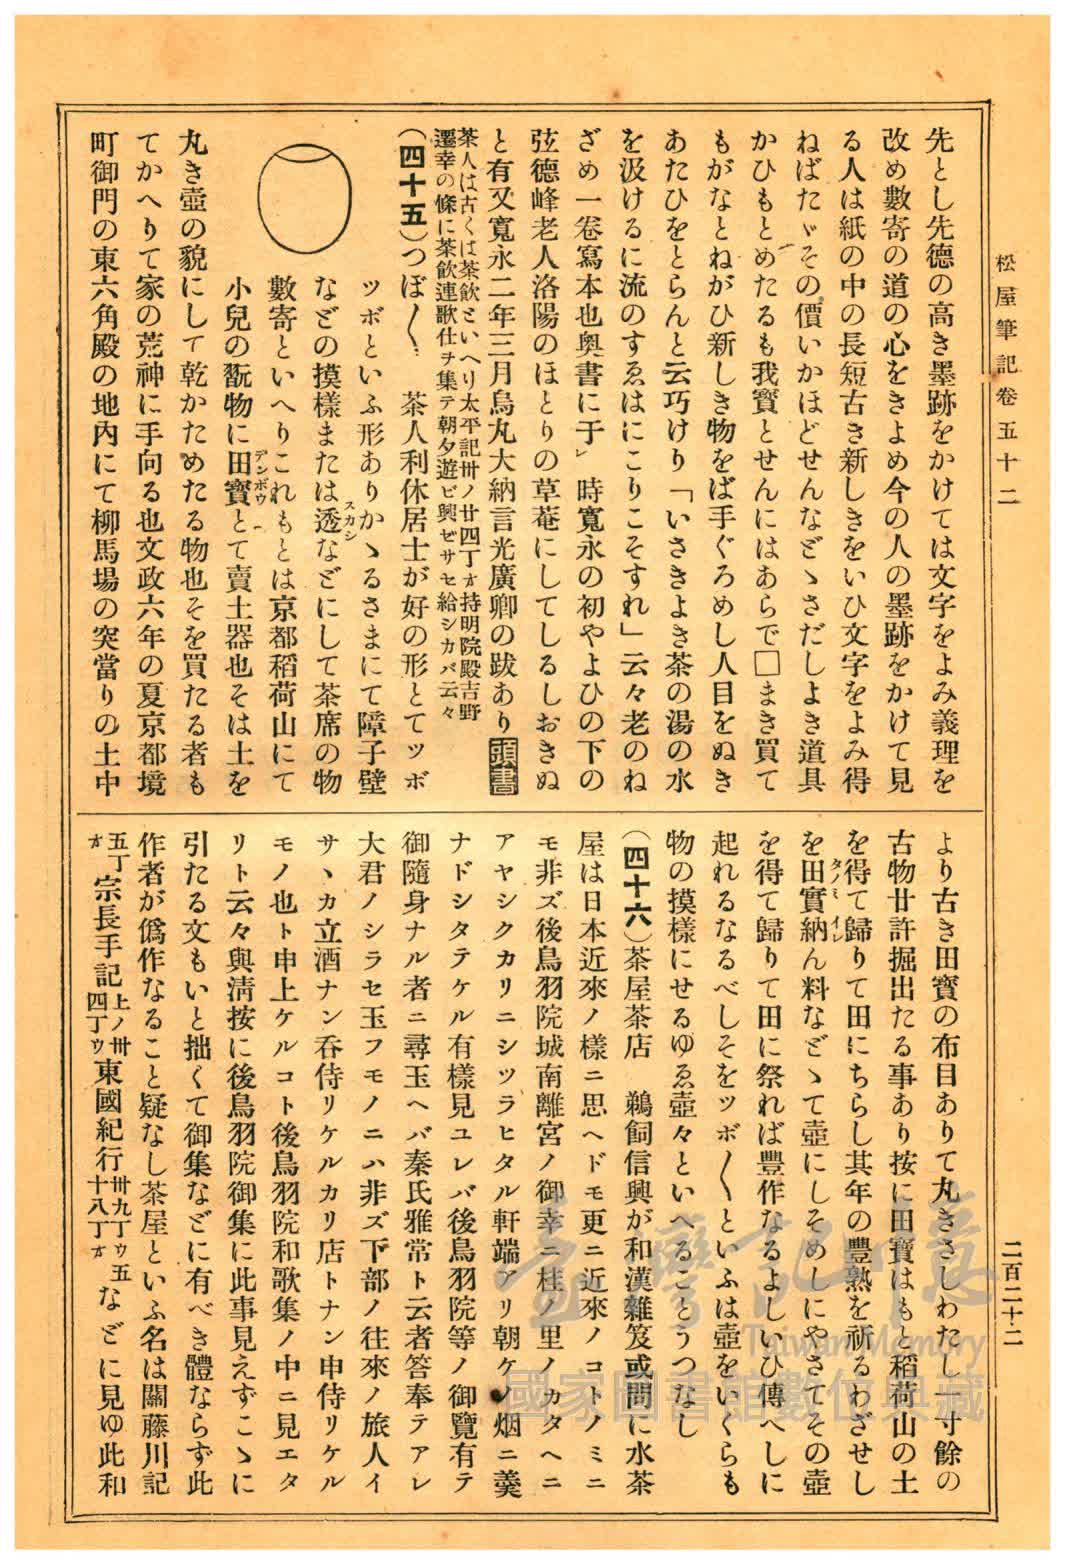 松屋筆記卷五十二
二百二十二
先とし先德の高き墨跡をかけては文字をよみ義理を
改め數寄の道の心をきよめ今の人の墨跡をかけて見
る人は紙の中の長短古き新しきをいひ文字をよみ得
ねばたゞその價いかほどせんなどゝさだしよき道具
かひもとめたるも我寶とせんにはあらで□まき買て
もがなとねがひ新しき物をば手ぐろめし人目をぬき
あたひをとらんと云巧けり「いさきよき茶の湯の水
を汲けるに流のすゑはにこりこそすれ」云々老のね
ざめ一卷寫本也奥書に于レ時寬永の初やよひの下の
弦德峰老人洛陽のほとりの草菴にしてしるしおきぬ
と有又寬永二年三月烏丸大納言光廣卿の跋あり頭書
茶人は古くは茶飮といへり太平記卅ノ廿四丁ォ持明院殿吉野
遷幸の條に茶飮連歌仕ヲ集テ朝夕遊ビ興ゼサセ給シカバ云々
(四十五)つぼ〱 茶人利休居士が好の形とてツボ
ツボといふ形ありかゝるさまにて障子壁
などの摸樣または透スカシなどにして茶席の物
數寄といへりこれもとは京都稻荷山にて
小兒の翫物に田寶デンボウとて賣土器也そは土を
丸き壺の貌にして乾かためたる物也そを買たる者も
てかへりて家の荒神に手向る也文政六年の夏京都境
町御門の東六角殿の地內にて柳馬場の突當りの土中
より古き田寶の布目ありて丸きさしわたし一寸餘の
古物廿許掘出たる事あり按に田寶はもと稻荷山の土
を得て歸りて田にちらし其年の豐熟を祈るわざせし
を田實納タノミイレん料などゝて壺にしそめしにやさてその壺
を得て歸りて田に祭れば豐作なるよしいひ傳へしに
起れるなるべしそをツボ〱といふは壺をいくらも
物の摸樣にせるゆゑ壺々といへることうつなし
(四十六)茶屋茶店 鵜飼信興が和漢雜笈或問に水茶
屋は日本近來ノ樣ニ思ヘドモ更ニ近來ノコトノミニ
モ非ズ後鳥羽院城南離宮ノ御幸ニ桂ノ里ノカタヘニ
アヤシクカリニシツラヒタル軒端アリ朝ケノ烟ニ羹
ナドシタテケル有樣見ユレバ後鳥羽院等ノ御覽有テ
御隨身ナル者ニ尋玉ヘバ秦氏雅常ト云者答奉テアレ
大君ノシラセ玉フモノニハ非ズ下部ノ往來ノ旅人イ
サヽカ立酒ナン呑侍リケルカリ店トナン申侍リケル
モノ也ト申上ケルコト後鳥羽院和歌集ノ中ニ見エタ
リト云々與淸按に後鳥羽院御集に此事見えずこゝに
引たる文もいと拙くて御集などに有べき體ならず此
作者が僞作なること疑なし茶屋といふ名は關藤川記
五丁ォ宗長手記上ノ卅四丁ゥ東國紀行卅九丁ゥ五十八丁ォなどに見ゆ此和